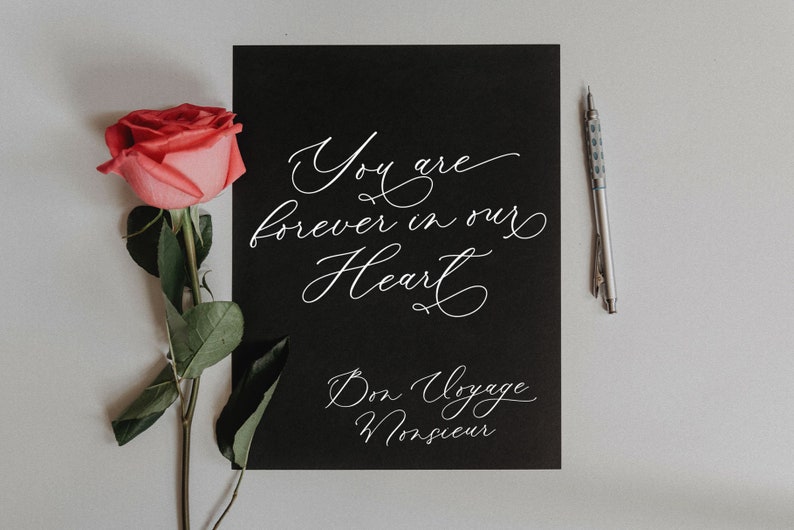 You are
forever in our
Heart
Bon Voyage
Monsieur